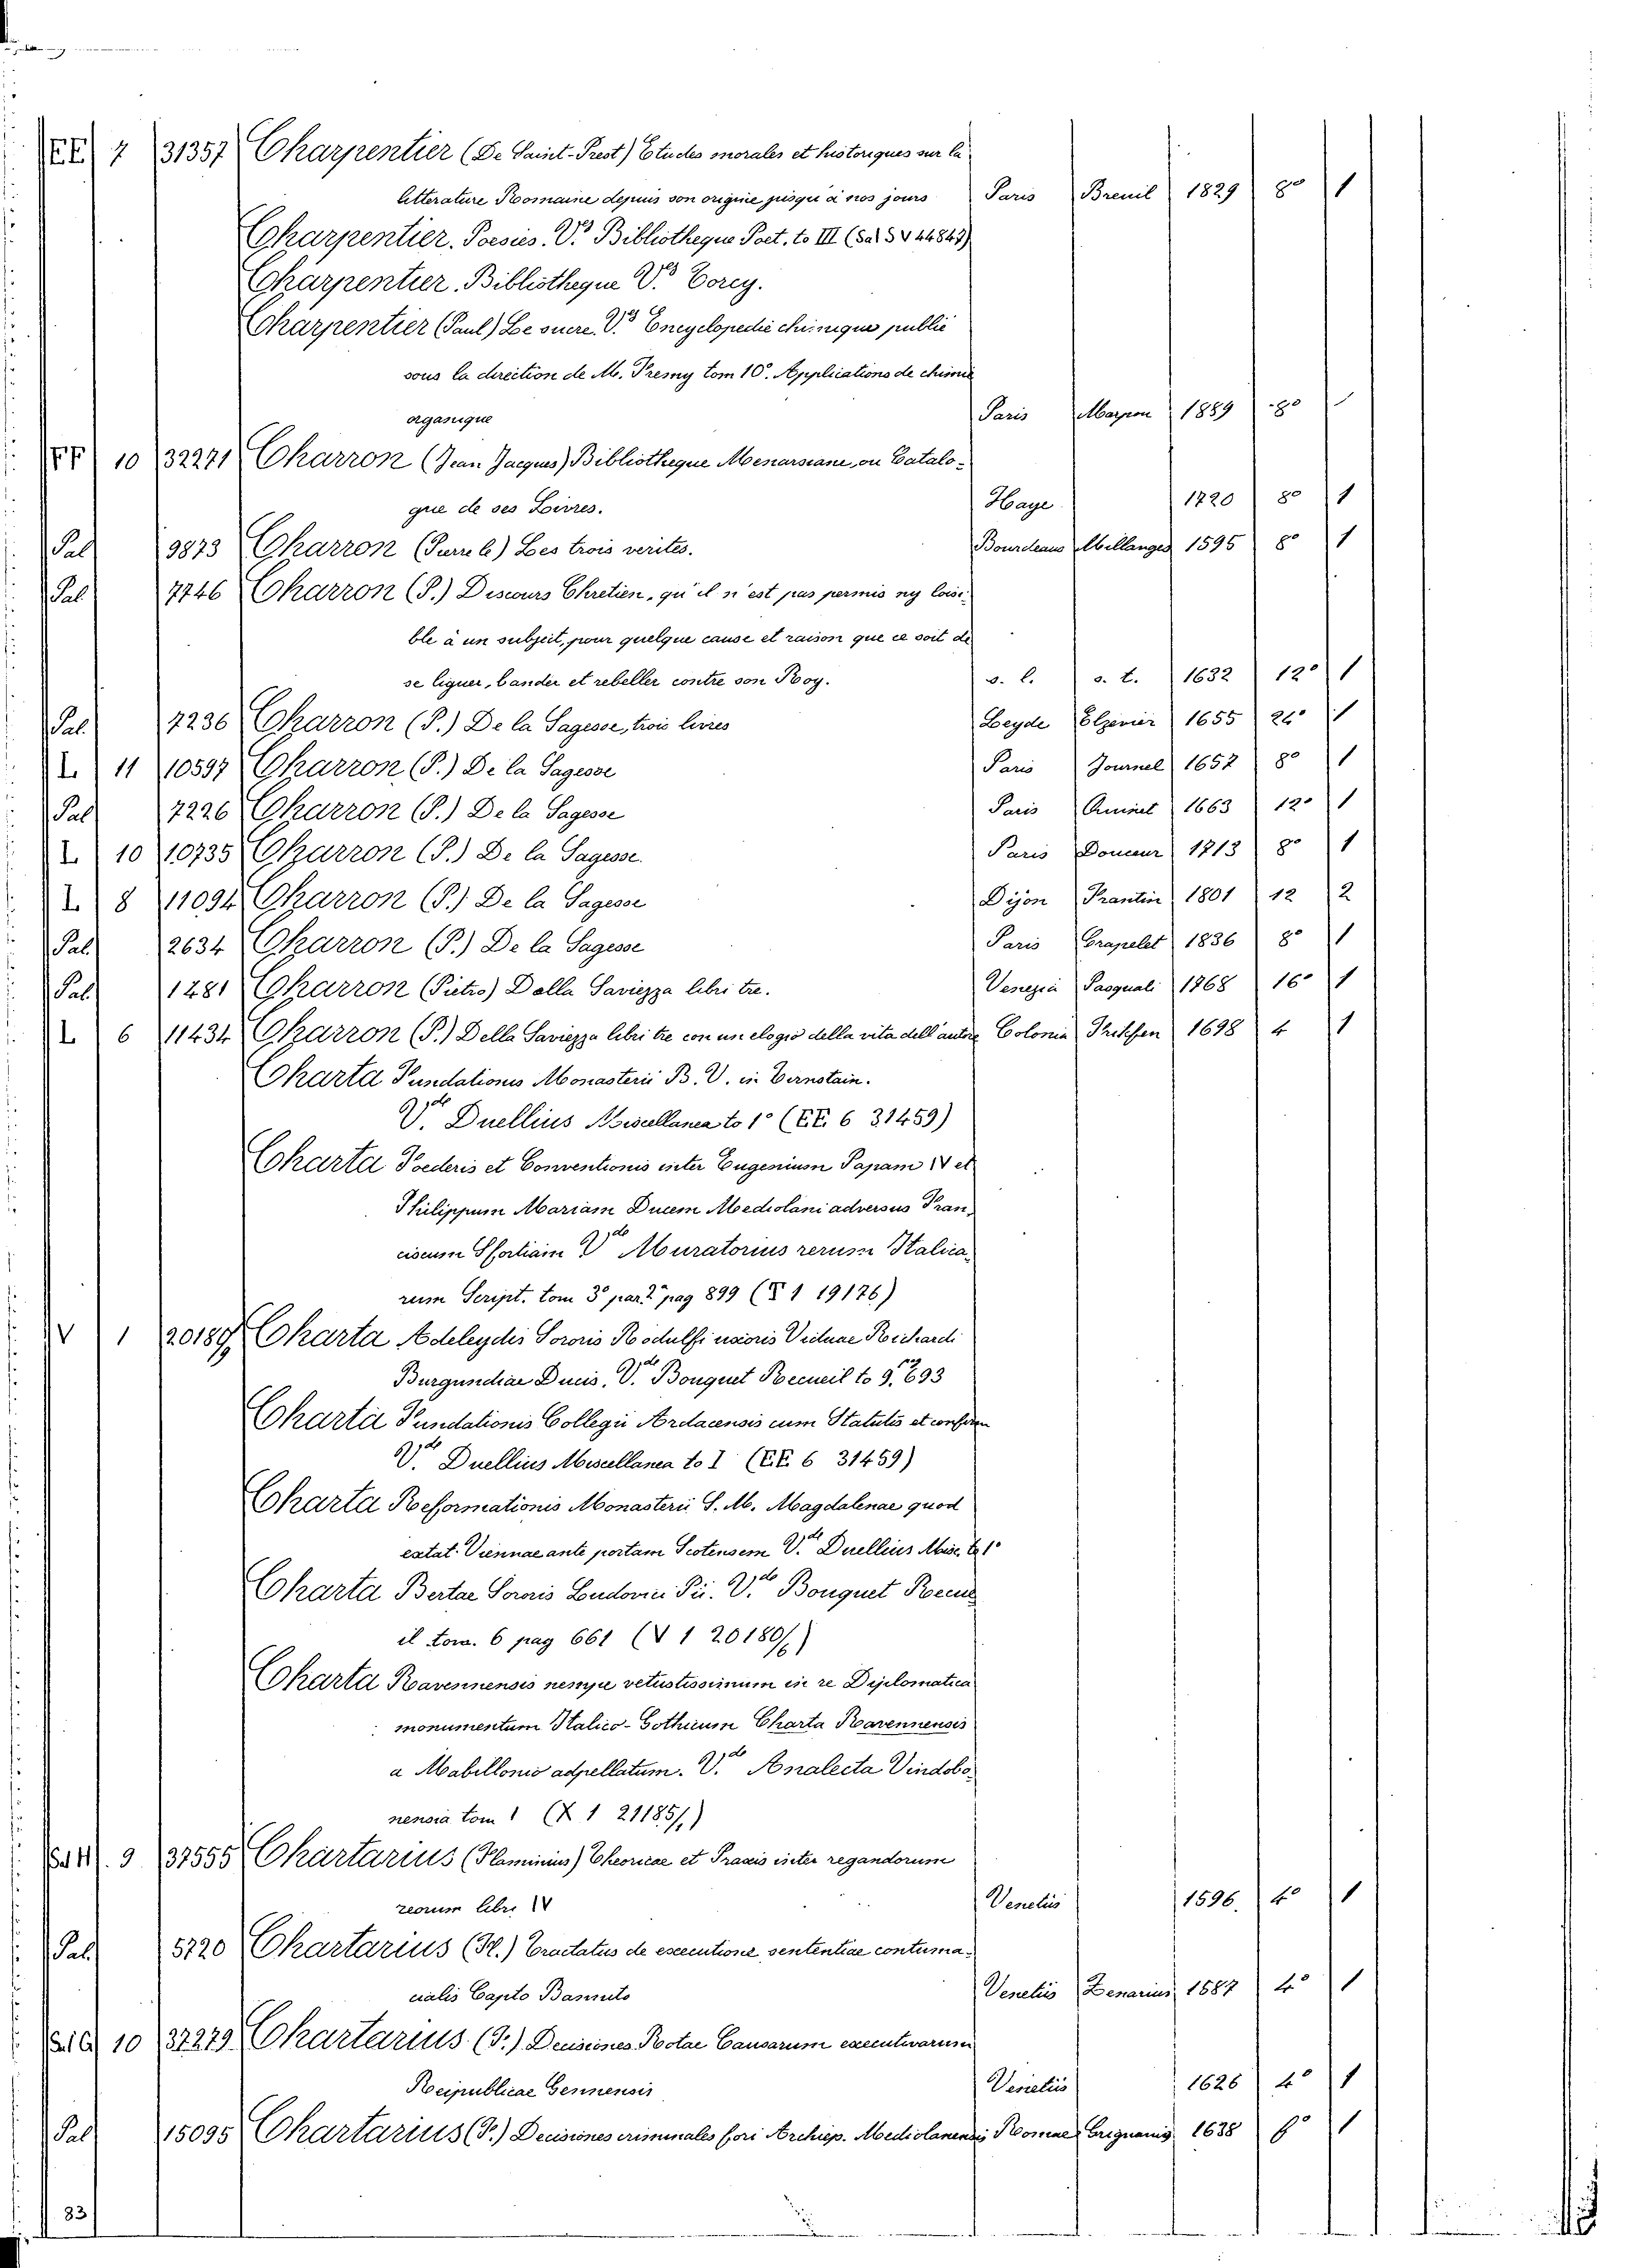 EE 7 31357 Charpentier (De Saint-Prest) Etudes morales et historiques sur la
litterature Romaine depuis son origine jusqu'à nos jours Paris Breuil 1829 8° 1
Charpentier. Poesies. V.° Bibliotheque Poet. to III (Sal S V 44847)
Charpentier. Bibliotheque V.° Corey.
Charpentier (Paul) Le sucre. V.° Encyclopedie chimique publié
sous la direction de M. Fremy tom 10°. Applications de chimie
organique Paris 1889 8°
FF 10 32271 Charron (Jean Jacques) Bibliotheque Menarsiane, ou Catalo-
gue de ses Livres. Haye 1720 8° 1
Pal 9873 Charron (Pierre le) Les trois verites. Bourdeaus Millanges 1595 8° 1
Pal 7746 Charron (P.) Discours Chretien, qu'il n'est pas permis ny loisi-
ble à un subjeit, pour quelque cause et raison que ce soit de
se liguer, bander et rebeller contre son Roy. s. l. s. t. 1632 12° 1
Pal. 7236 Charron (P.) De la Sagesse, trois livres Leyde Elzevier 1655 24° 1
L 11 10597 Charron (P.) De la Sagesse Paris Journel 1657 8° 1
Pal 7226 Charron (P.) De la Sagesse Paris 1663 12° 1
L 10 10735 Charron (P.) De la Sagesse. Paris Douceur 1713 8° 1
L 8 11094 Charron (P.) De la Sagesse Dijon Frantin 1801 12 2
Pal. 2634 Charron (P.) De la Sagesse Paris Crapelet 1836 8° 1
Pal. 1281 Charron (Pietro) Dalla Saviezza libri tre. Venezia Pasquali 1768 16° 1
L 6 11434 Charron (P.) Della Saviezza libri tre con un elogio della vita dell'autore Colonia 1698 4 1
Charta Fundationis Monasterii B. V. in Bernstain.
V.de Duellius Miscellanea to 1° (EE 6 31459)
Charta Foederis et Conventionis inter Eugenium Papam IV et
Philippum Mariam Ducem Mediolani adversus Fran-
ciscum Sfortiam V.de Muratorius rerum Italica-
rum Script. tom 3° par. 2ª pag 899 (S 1 19176)
V 1 20189/9 Charta Adeleydis Sororis Rodulfi uxoris Viduae Reichardi
Burgundiae Ducis. V.de Bouquet Recueil to 9. pag 693
Charta Fundationis Collegii Ardacensis cum Statutis et confirm
V.de Duellius Miscellanea to I (EE 6 31459)
Charta Reformationis Monasterii S. M. Magdalenae quod
extat Viennae ante portam Scotensem V.de Duellius Misc. to 1°
Charta Bertae Sororis Ludovici Pii. V.de Bouquet Recue
il tom. 6 pag 661 (V 1 20180/6)
Charta Ravennensis nempe vetustissimum in re Diplomatica
monumentum Italico-Gothicum Charta Ravennensis
a Mabillonio adpellatum. V.de Analecta Vindobo-
nensia tom 1 (X 1 21185/1)
Sal II 9 37555 Chartarius (Flaminius) Theoricae et Praxis inter regandorum
reorum libri IV Venetiis 1596. 4° 1
Pal. 5720 Chartarius (Fl.) Tractatus de executione sententiae contuma-
cialis Capto Bannito Venetiis Zenarius 1587 4° 1
10 37279 Chartarius (F.) Decisiones Rotae Causarum executivarum
Reipublicae Gennensis Venetiis 1626 4° 1
Pal 15095 Chartarius (F.) Decisiones criminales fori Archiep. Mediolanensis Romae Grignanis 1638 1
83